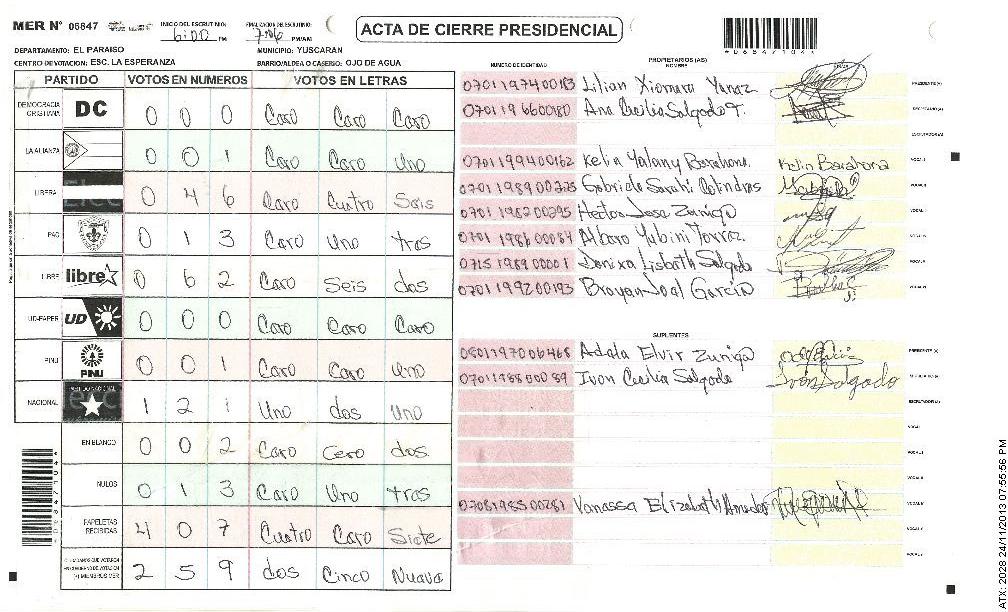 MER N° 06847 INICIO DEL ESCRUTINIO: 6:00 PM FINALIZACION DEL ESCRUTINIO: PM/AM
ACTA DE CIERRE PRESIDENCIAL
DEPARTAMENTO: EL PARAISO MUNICIPIO: YUSCARAN
CENTRO DE VOTACION: ESC. LA ESPERANZA BARRIO/ALDEA O CASERIO: OJO DE AGUA
PARTIDO VOTOS EN NUMEROS VOTOS EN LETRAS
DEMOCRACIA CRISTIANA DC 0 0 0 Caro Caro Caro
LA ALIANZA 0 0 1 Caro Caro Uno
LIBERAL 0 4 6 Caro Cuatro Seis
PAC 0 1 3 Caro Uno tras
LIBRE libre 0 6 2 Caro Seis dos
UD-FAPER UD 0 0 0 Caro Caro Caro
PINU PINU 0 0 1 Caro Caro Uno
NACIONAL 1 2 1 Uno dos Uno
EN BLANCO 0 0 2 Caro Cero dos
NULOS 0 1 3 Caro Uno tras
PAPELETAS RECIBIDAS 4 0 7 Cuatro Caro Siete
2 5 9 dos Cinco Nuava
NUMERO DE IDENTIDAD PROPIETARIOS (AS) NOMBRE FIRMA
0701197400183 Lilian Xiomara PRESIDENTE (A)
0701196600180 Ana Cecilia Salgado T. SECRETARIO (A)
ESCRUTADOR (A)
0701199400162 Kelin Yolany Barahona Kelin Barahona VOCAL I
0701198900225 Gabriela Sarahi Colindres
0701198200295 Hector Jose Zuniga
0701198600084 Alvaro Yubini Torraz
0715198900001 Denixa Lisbath Salgado
0701199200193 Brayan Joal Garcia
SUPLENTES
0801197006468 Adala Elvir Zuniga PRESIDENTE (A)
0701198800089 Ivon Cecilia Salgado Ivon Salgado
ESCRUTADOR (A)
0708198500281 Vanassa Elizabath Amador
ATX: 2028 24/11/2013 07:55:56 PM